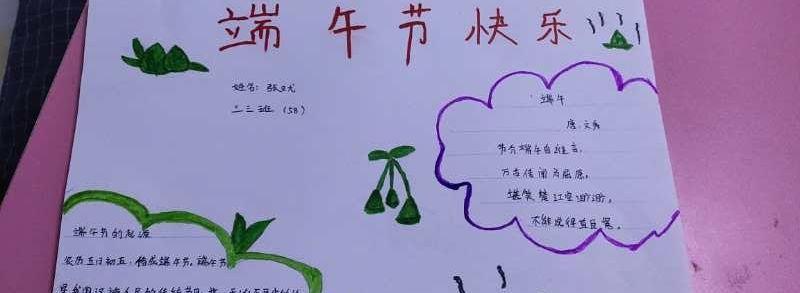 端午节快乐
姓名：张又尤
二三班（58）
端午
唐·文秀
节分端午自谁言，
万古传闻为屈原。
堪笑楚江空渺渺，
不能洗得直臣冤。
端午节的起源
农历五月初五，俗成端午节。端午节
是我国汉族人民的传统节日